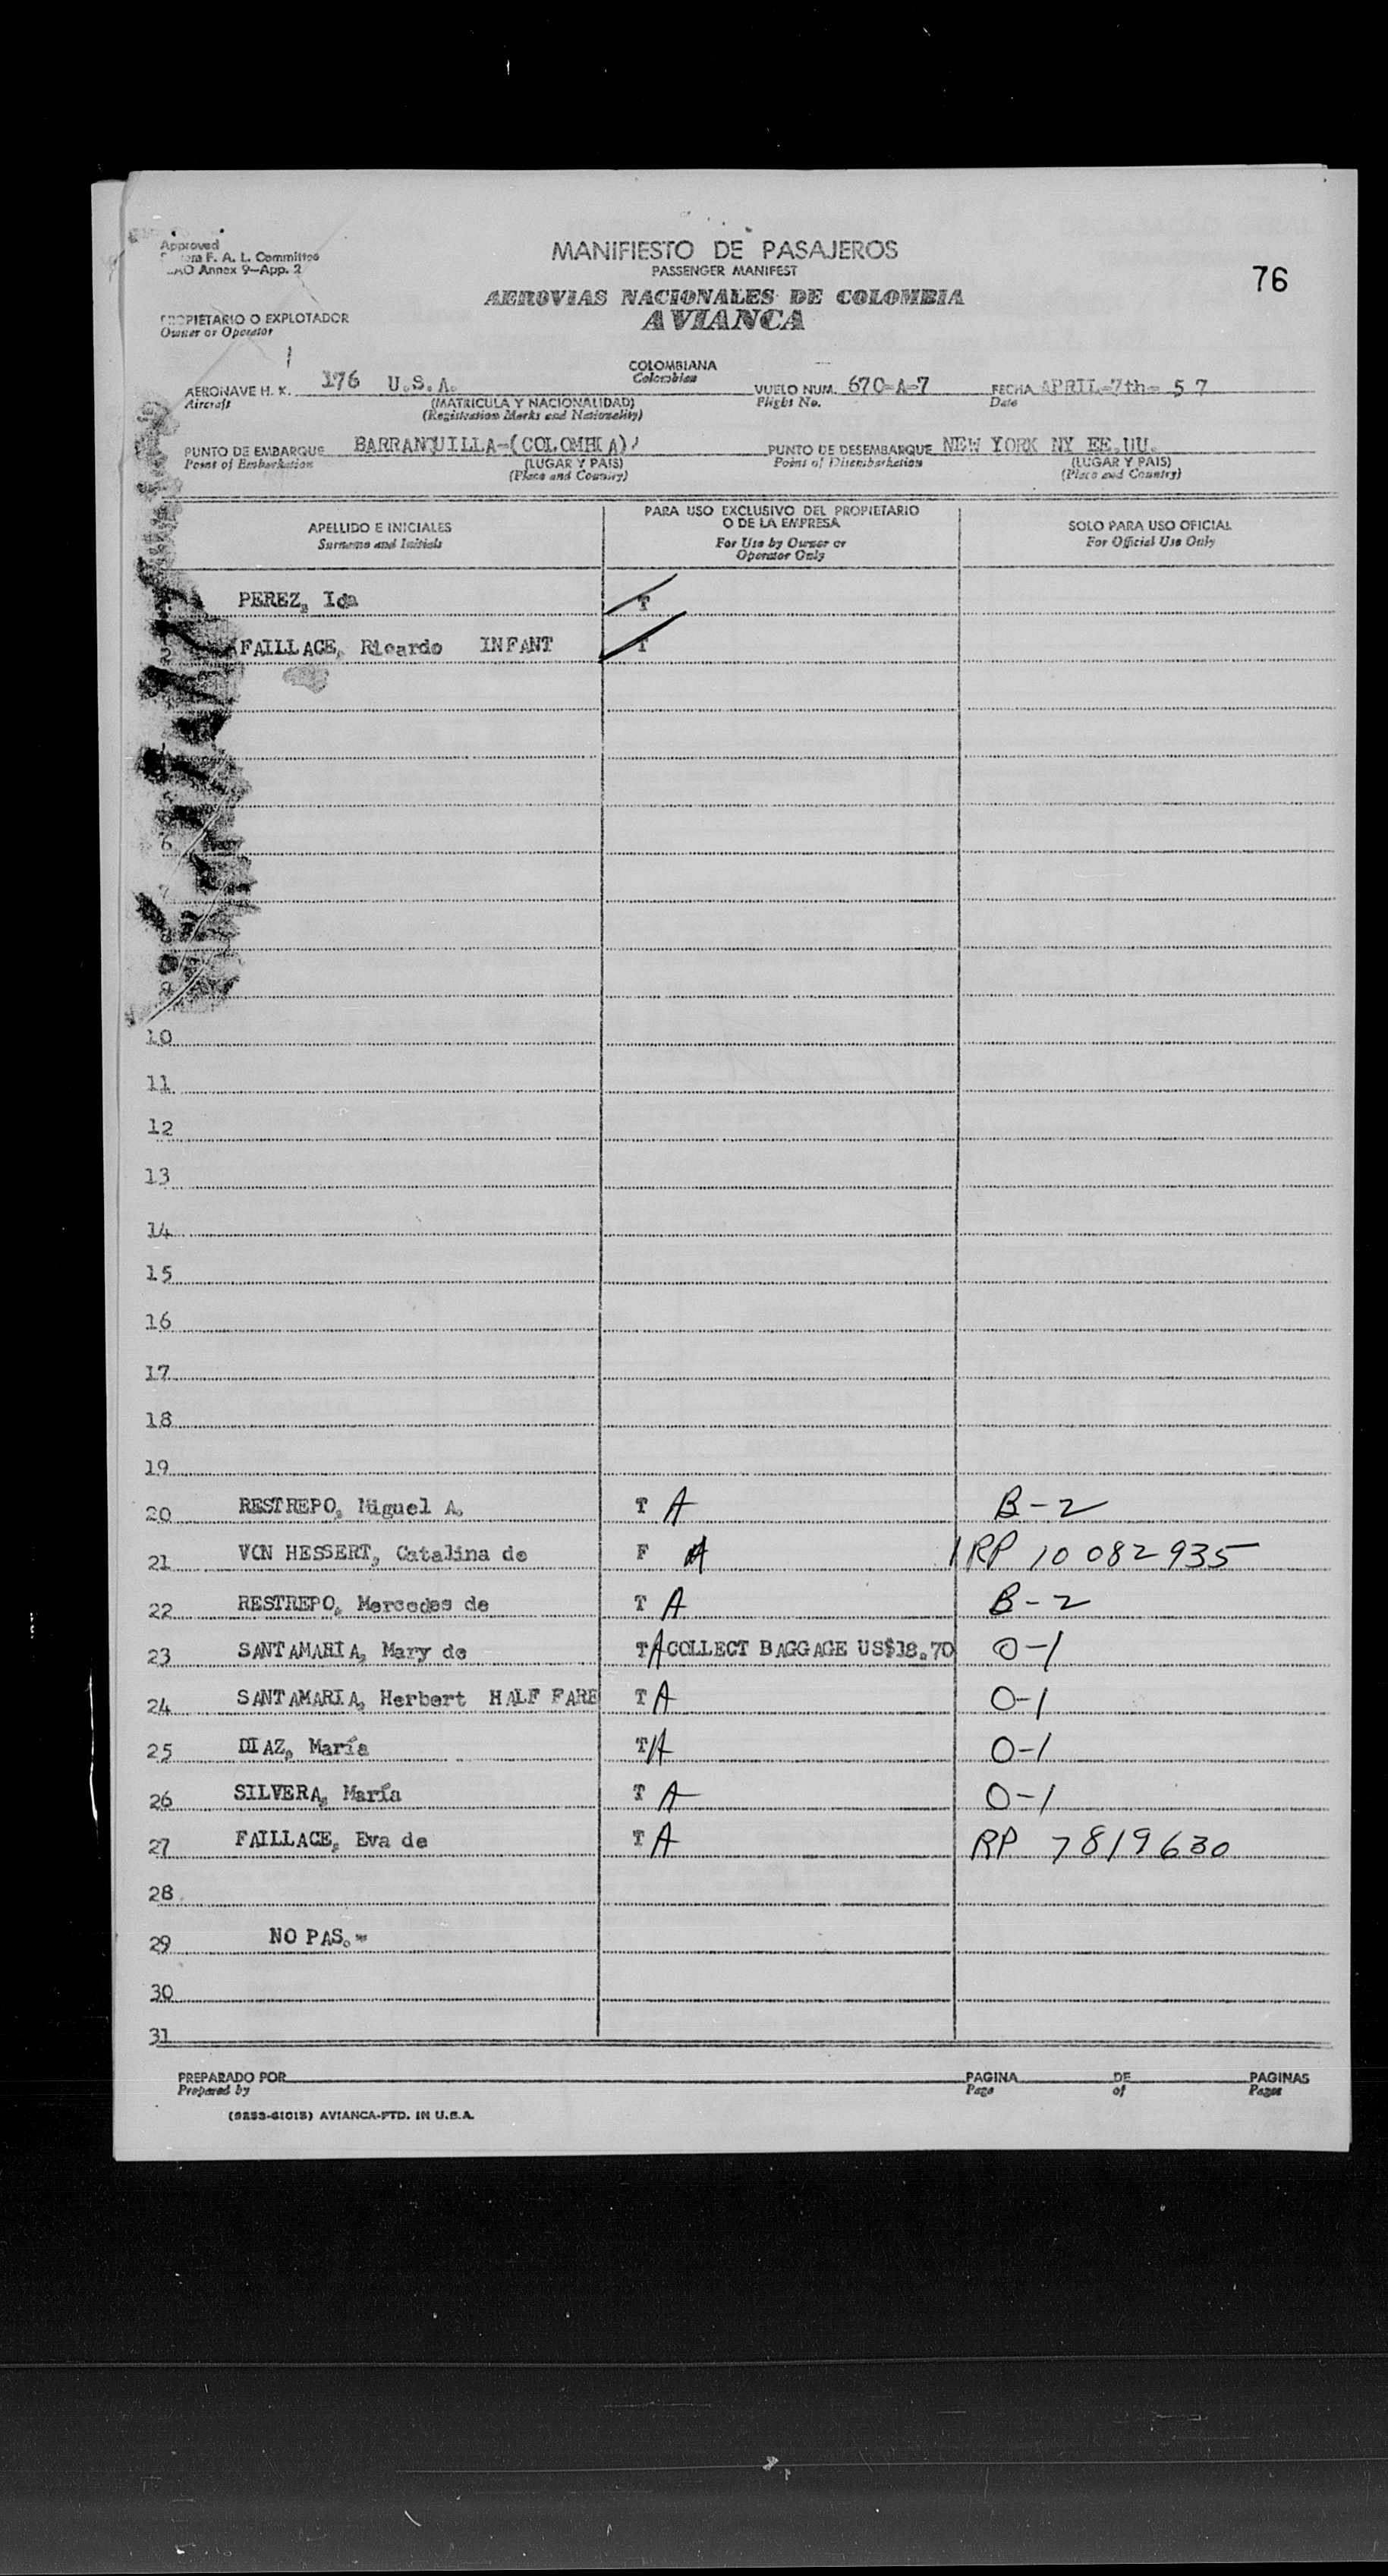 Approved
F. A. L. Committee
Annex 9-App. 2
MANIFIESTO DE PASAJEROS
PASSENGER MANIFEST
76
AEROVIAS NACIONALES DE COLOMBIA
AVIANCA
PROPIETARIO O EXPLOTADOR
Owner or Operator
COLOMBIANA
Colombian
AERONAVE H. K. 176 U.S.A. VUELO NUM. 670-A-7 FECHA APRIL-7th- 5 7
Aircraft (MATRICULA Y NACIONALIDAD) Flight No. Date
(Registration Marks and Nationality)
PUNTO DE EMBARQUE BARRANQUILLA-(COLOMBIA) PUNTO DE DESEMBARQUE NEW YORK NY EE.UU.
Point of Embarkation (LUGAR Y PAIS) Point of Disembarkation (LUGAR Y PAIS)
(Place and Country) (Place and Country)
APELLIDO E INICIALES
Surname and Initials
PARA USO EXCLUSIVO DEL PROPIETARIO
O DE LA EMPRESA
For Use by Owner or
Operator Only
SOLO PARA USO OFICIAL
For Official Use Only
PEREZ, Ida T
2 FAILLACE, Ricardo INFANT T
6
7
8
9
10
11
12
13
14
15
16
17
18
19
20 RESTREPO, Miguel A. T A B-2
21 VON HESSERT, Catalina de F A RP 10 082935
22 RESTREPO, Mercedes de T A B-2
23 SANTAMARIA, Mary de T A COLLECT BAGGAGE US$18.70 O-1
24 SANTAMARIA, Herbert HALF FARE T A O-1
25 DIAZ, María T A O-1
26 SILVERA, María T A O-1
27 FAILLACE, Eva de T A RP 7819630
28
29 NO PAS.-
30
31
PREPARADO POR PAGINA DE PAGINAS
Prepared by Page of Pages
AVIANCA-PTD. IN U.S.A.